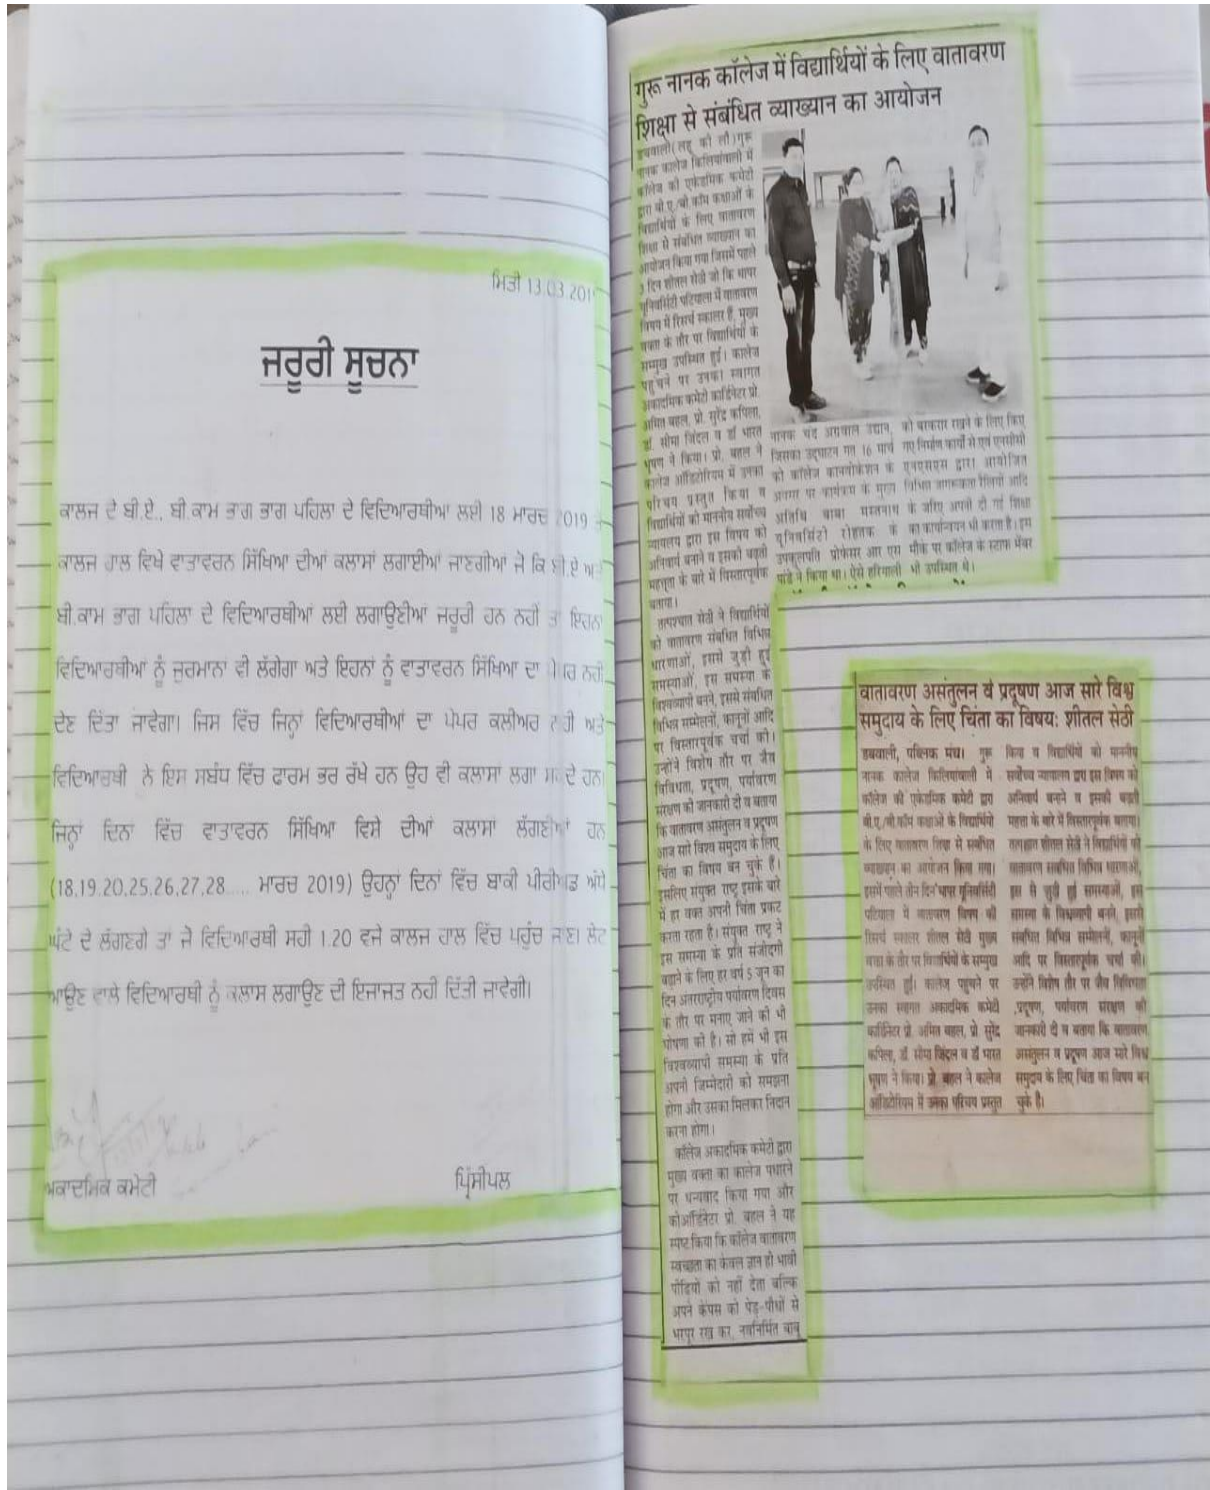 ਮਿਤੀ 13.03.201
ਜਰੂਰੀ ਸੂਚਨਾ
ਕਾਲਜ ਦੇ ਬੀ.ਏ., ਬੀ.ਕਾਮ ਭਾਗ ਭਾਗ ਪਹਿਲਾ ਦੇ ਵਿਦਿਆਰਥੀਆ ਲਈ 18 ਮਾਰਚ 2019
ਕਾਲਜ ਹਾਲ ਵਿਖੇ ਵਾਤਾਵਰਨ ਸਿੱਖਿਆ ਦੀਆਂ ਕਲਾਸਾਂ ਲਗਾਈਆਂ ਜਾਣਗੀਆਂ ਜੋ ਕਿ ਬੀ.ਏ ਅਤੇ
ਬੀ.ਕਾਮ ਭਾਗ ਪਹਿਲਾ ਦੇ ਵਿਦਿਆਰਥੀਆਂ ਲਈ ਲਗਾਉਣੀਆਂ ਜਰੂਰੀ ਹਨ ਨਹੀ ਤਾਂ ਇਹਨਾਂ
ਵਿਦਿਆਰਥੀਆਂ ਨੂੰ ਜੁਰਮਾਨਾਂ ਵੀ ਲੱਗੇਗਾ ਅਤੇ ਇਹਨਾਂ ਨੂੰ ਵਾਤਾਵਰਨ ਸਿੱਖਿਆ ਦਾ ਪੇਪਰ ਨਹੀਂ
ਦੇਣ ਦਿੱਤਾ ਜਾਵੇਗਾ। ਜਿਸ ਵਿੱਚ ਜਿਨ੍ਹਾਂ ਵਿਦਿਆਰਥੀਆਂ ਦਾ ਪੇਪਰ ਕਲੀਅਰ ਨਹੀ ਅਤੇ
ਵਿਦਿਆਰਥੀ ਨੇ ਇਸ ਸਬੰਧ ਵਿੱਚ ਫਾਰਮ ਭਰ ਰੱਖੇ ਹਨ ਉਹ ਵੀ ਕਲਾਸਾ ਲਗਾ ਸਕਦੇ ਹਨ।
ਜਿਨ੍ਹਾਂ ਦਿਨਾਂ ਵਿੱਚ ਵਾਤਾਵਰਨ ਸਿੱਖਿਆ ਵਿਸੇ ਦੀਆਂ ਕਲਾਸਾਂ ਲੱਗਣੀਆਂ ਹਨ
(18,19,20,25,26,27,28..... ਮਾਰਚ 2019) ਉਹਨ੍ਹਾਂ ਦਿਨਾਂ ਵਿੱਚ ਬਾਕੀ ਪੀਰੀਅਡ ਅੱਧੇ
ਘੰਟੇ ਦੇ ਲੱਗਣਗੇ ਤਾਂ ਜੋ ਵਿਦਿਆਰਥੀ ਸਹੀ 1.20 ਵਜੇ ਕਾਲਜ ਹਾਲ ਵਿੱਚ ਪਹੁੰਚ ਜਾਣ। ਲੇਟ
ਆਉਣ ਵਾਲੇ ਵਿਦਿਆਰਥੀ ਨੂੰ ਕਲਾਸ ਲਗਾਉਣ ਦੀ ਇਜਾਜਤ ਨਹੀ ਦਿੱਤੀ ਜਾਵੇਗੀ।
ਅਕਾਦਮਿਕ ਕਮੇਟੀ
ਪ੍ਰਿੰਸੀਪਲ
गुरू नानक कॉलेज में विद्यार्थियों के लिए वातावरण
शिक्षा से संबंधित व्याख्यान का आयोजन
डबवाली(लहू की लौ)गुरू
नानक कालेज किलियांवाली में
कॉलेज की एकेडमिक कमेटी के
द्वारा बी.ए./बी.कॉम कक्षाओं के
विद्यार्थियों के लिए वातावरण
शिक्षा से संबंधित व्याख्यान का
आयोजन किया गया जिसमें पहले
3 दिन शीतल सेठी जो कि थापर
यूनिवर्सिटी पटियाला में वातावरण
विषय में रिसर्च स्कालर हैं, मुख्य
वक्ता के तौर पर विद्यार्थियों के
सम्मुख उपस्थित हुई। कालेज
पहुंचने पर उनका स्वागत
अकादमिक कमेटी कार्डिनेटर प्रो.
अमित बहल, प्रो. सुरेंद्र कपिला,
डॉ. सीमा जिंदल व डॉ भारत
भूषण ने किया। प्रो. बहल ने
कालेज ऑडिटोरियम में उनका
परिचय प्रस्तुत किया व
विद्यार्थियों को माननीय सर्वोच्च
न्यायलय द्वारा इस विषय को
अनिवार्य बनाने व इसकी बढ़ती
महत्ता के बारे में विस्तारपूर्वक
बताया।
तत्पश्चात सेठी ने विद्यार्थियों
को वातावरण संबंधित विभिन्न
धारणाओं, इससे जुड़ी हुई
समस्याओं, इस समस्या के
विश्वव्यापी बनने, इससे संबंधित
विभिन्न सम्मेलनों, कानूनों आदि
पर विस्तारपूर्वक चर्चा की।
उन्होंने विशेष तौर पर जैव
विविधता, प्रदूषण, पर्यावरण
संरक्षण की जानकारी दी व बताया
कि वातावरण असंतुलन व प्रदूषण
आज सारे विश्व समुदाय के लिए
चिंता का विषय बन चुके हैं।
इसलिए संयुक्त राष्ट्र इसके बारे
में हर वक्त अपनी चिंता प्रकट
करता रहता है। संयुक्त राष्ट्र ने
इस समस्या के प्रति संजीदगी
बढ़ाने के लिए हर वर्ष 5 जून का
दिन अंतरराष्ट्रीय पर्यावरण दिवस
के तौर पर मनाए जाने की भी
घोषणा की है। सो हमें भी इस
विश्वव्यापी समस्या के प्रति
अपनी जिम्मेदारी को समझना
होगा और उसका मिलका निदान
करना होगा।
कॉलेज अकादमिक कमेटी द्वारा
मुख्य वक्ता का कालेज पधारने
पर धन्यवाद किया गया और
कोऑर्डिनेटर प्रो. बहल ने यह
स्पष्ट किया कि कॉलेज वातावरण
स्वच्छता का केवल ज्ञान ही भावी
पीढ़ियों को नहीं देता बल्कि
अपने कैंपस को पेड़-पौधों से
भरपूर रख कर, नवनिर्मित बाबू
नानक चंद अग्रवाल उद्यान,
जिसका उद्घाटन गत 16 मार्च
को कॉलेज कानवोकेशन के
अवसर पर कार्यक्रम के मुख्य
अतिथि बाबा मस्तनाथ
यूनिवर्सिटी रोहतक के
उपकुलपति प्रोफेसर आर एस
पांडे ने किया था। ऐसे हरियाली
को बरकरार रखने के लिए किए
गए निर्माण कार्यों से एवं एनसीसी
एनएसएस द्वारा आयोजित
विभिन्न जागरूकता रैलियों आदि
के जरिए अपनी दी गई शिक्षा
का कार्यान्वयन भी करता है। इस
मौके पर कॉलेज के स्टाफ मेंबर
भी उपस्थित थे।
वातावरण असंतुलन व प्रदूषण आज सारे विश्व
समुदाय के लिए चिंता का विषय: शीतल सेठी
डबवाली, पब्लिक मंच। गुरू
नानक कालेज किलियांवाली में
कॉलेज की एकेडमिक कमेटी द्वारा
बी.ए./बी.कॉम कक्षाओं के विद्यार्थियों
के लिए वातावरण शिक्षा से संबंधित
व्याख्यान का आयोजन किया गया।
इसमें पहले तीन दिन थापर यूनिवर्सिटी
पटियाला में वातावरण विषय की
रिसर्च स्कालर शीतल सेठी मुख्य
वक्ता के तौर पर विद्यार्थियों के सम्मुख
उपस्थित हुई। कालेज पहुंचने पर
उनका स्वागत अकादमिक कमेटी
कार्डिनेटर प्रो. अमित बहल, प्रो. सुरेंद्र
कपिला, डॉ. सीमा जिंदल व डॉ भारत
भूषण ने किया। प्रो. बहल ने कालेज
ऑडिटोरियम में उनका परिचय प्रस्तुत
किया व विद्यार्थियों को माननीय
सर्वोच्च न्यायालय द्वारा इस विषय को
अनिवार्य बनाने व इसकी बढ़ती
महत्ता के बारे में विस्तारपूर्वक बताया।
तत्पश्चात शीतल सेठी ने विद्यार्थियों को
वातावरण संबंधित विभिन्न धारणाओं,
इस से जुड़ी हुई समस्याओं, इस
समस्या के विश्वव्यापी बनने, इससे
संबंधित विभिन्न सम्मेलनों, कानूनों
आदि पर विस्तारपूर्वक चर्चा की।
उन्होंने विशेष तौर पर जैव विविधता
,प्रदूषण, पर्यावरण संरक्षण की
जानकारी दी व बताया कि वातावरण
असंतुलन व प्रदूषण आज सारे विश्व
समुदाय के लिए चिंता का विषय बन
चुके है।